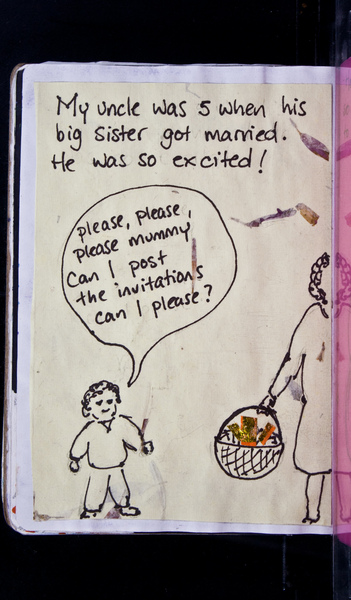 My uncle was 5 when his
big sister got married.
He was so excited!
please, please,
please mummy
Can I post
the invitations
can I please?